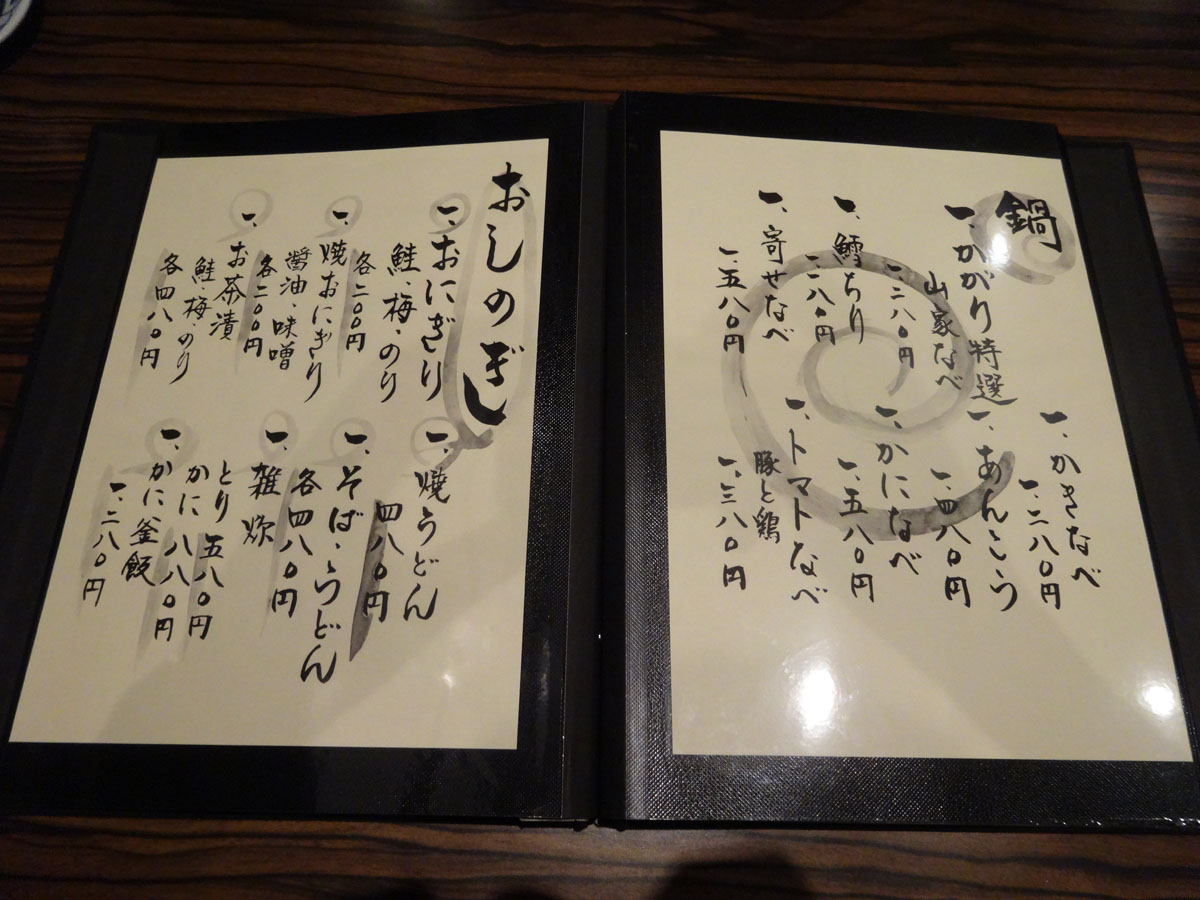 鍋
一、かがり特選
山家なべ
一、二八〇円
一、鱈ちり
一、二八〇円
一、寄せなべ
一、五八〇円
一、かきなべ
一、二八〇円
一、あんこう
一、四八〇円
一、かになべ
一、五八〇円
一、トマトなべ
豚と鶏
一、三八〇円
おしのぎ
一、おにぎり
鮭・梅・のり
各二〇〇円
一、焼おにぎり
醤油・味噌
各二〇〇円
一、お茶漬
鮭・梅・のり
各四八〇円
一、焼うどん
四八〇円
一、そば・うどん
各四八〇円
一、雑炊
とり 五八〇円
かに 八八〇円
一、かに釜飯
一、二八〇円